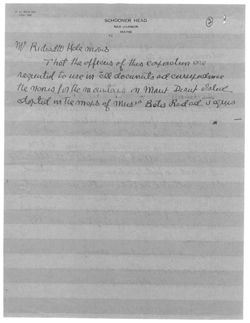 SCHOONER HEAD
BAR HARBOR
MAINE
Mr
That the officers of this corporation are
requested to use in all documents and correspondence
the names for the mountains on Mount Desert Island
adopted in the maps of Messrs Bates Rand and Jaques